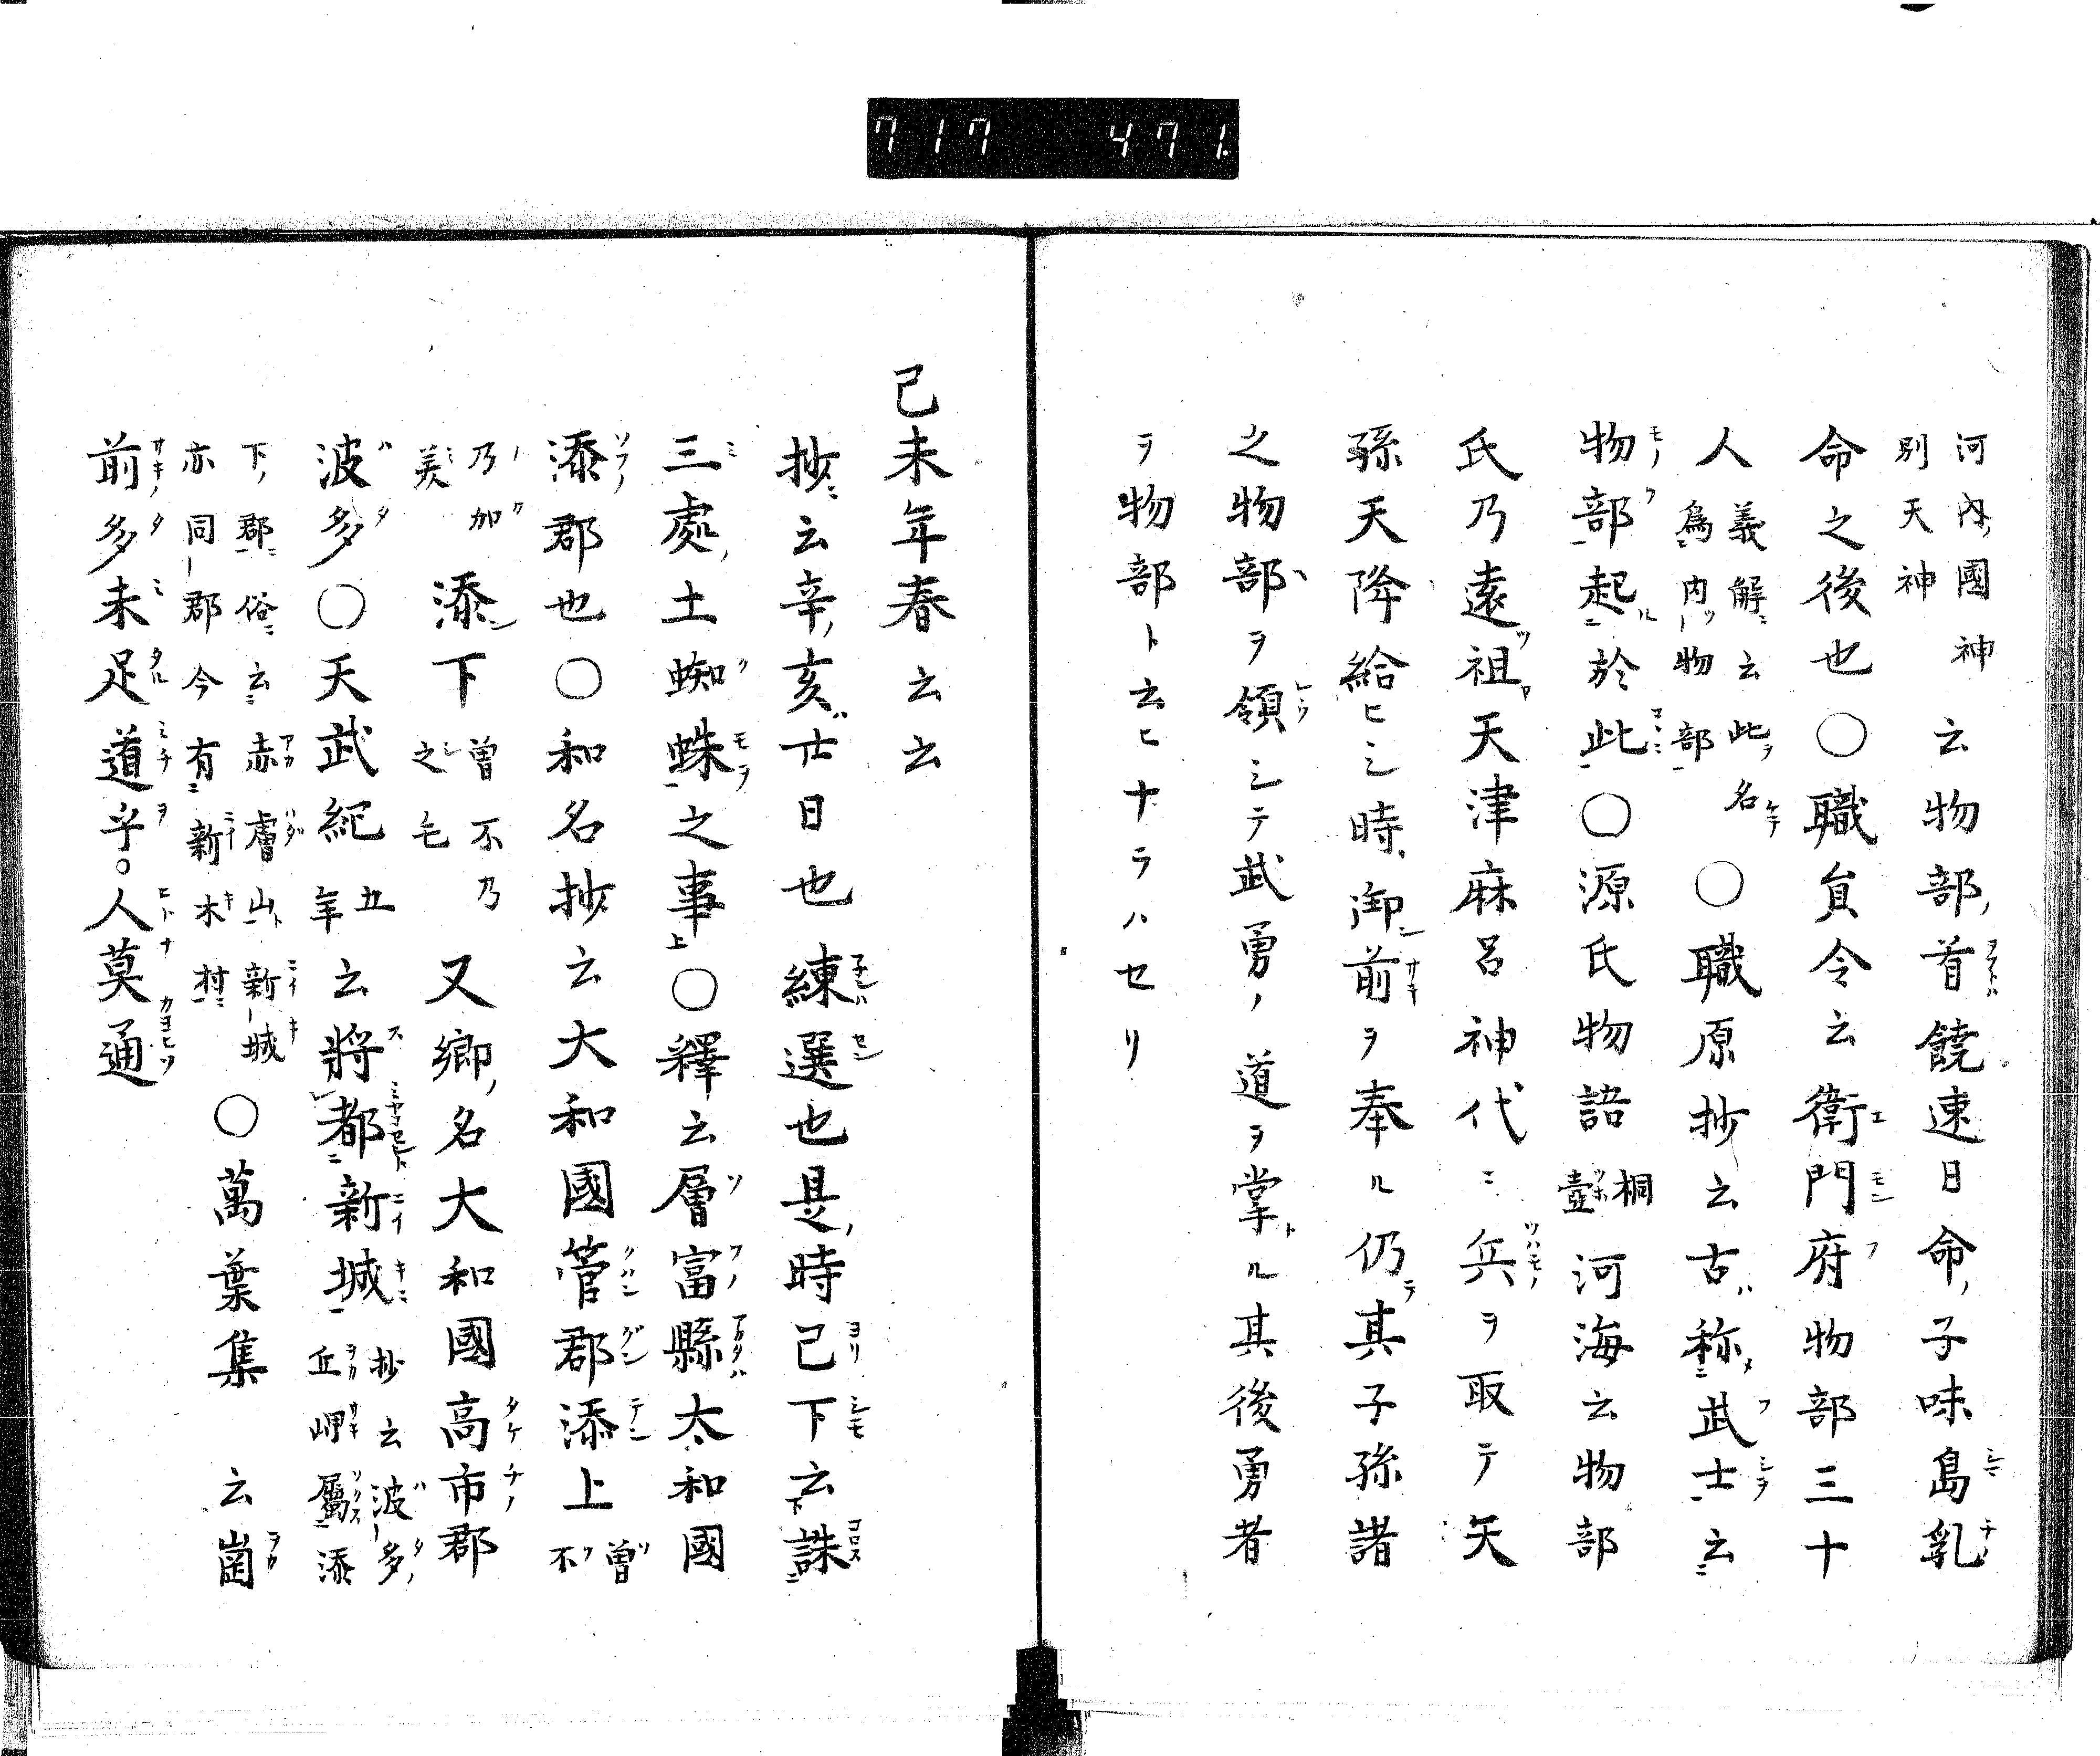 717 471.
河内國神別天神 云物部首饒速日命子味島乳
命之後也〇職員令云衛門府物部三十
人 義解云此名爲内物部 〇職原抄云古称武士云
物部起於此〇源氏物語 桐壺 河海云物部
氏乃遠祖天津麻呂神代ニ兵ヲ取テ矢
孫天降給ヒシ時御前ヲ奉ル仍其子孫諸
之物部ヲ領シテ武勇ノ道ヲ掌ル其後勇者
ヲ物部ト云ヒナラハセリ
己未年春云云
抄云辛亥廿日也練選也是時己下云誅
三處土蜘蛛之事〇釋云層富縣太和國
添郡也〇和名抄云大和國管郡添上 曽不
乃加美 添下 曽不乃之毛 又郷名大和國高市郡
波多〇天武紀 五年 云將都新城 抄云波多丘岬屬添
下郡俗云赤膚山新城亦同郡今有新木村 〇萬葉集 云崗
前多未足道乎。人莫通